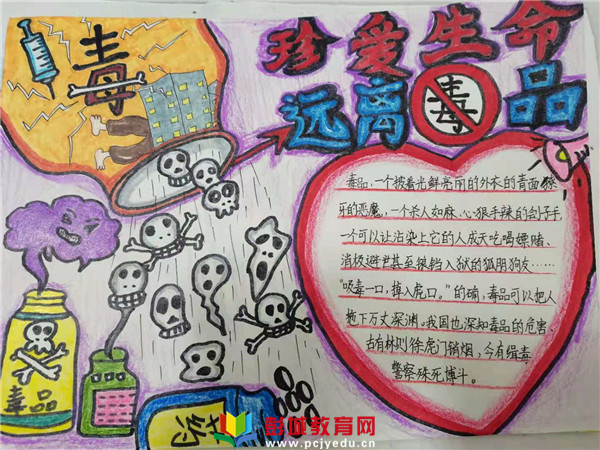 珍爱生命
远离毒品
毒
毒品，一个披着光鲜亮丽的外衣的青面獠
牙的恶魔，一个杀人如麻、心狠手辣的刽子手，
一个可以让沾染上它的人成天吃喝嫖赌、
消极避世甚至锒铛入狱的狐朋狗友……
“吸毒一口，掉入虎口。”的确，毒品可以把人
拖下万丈深渊。我国也深知毒品的危害，
古有林则徐虎门销烟，今有缉毒
警察殊死搏斗。
毒品
彭城教育网
www.pcjyedu.cn